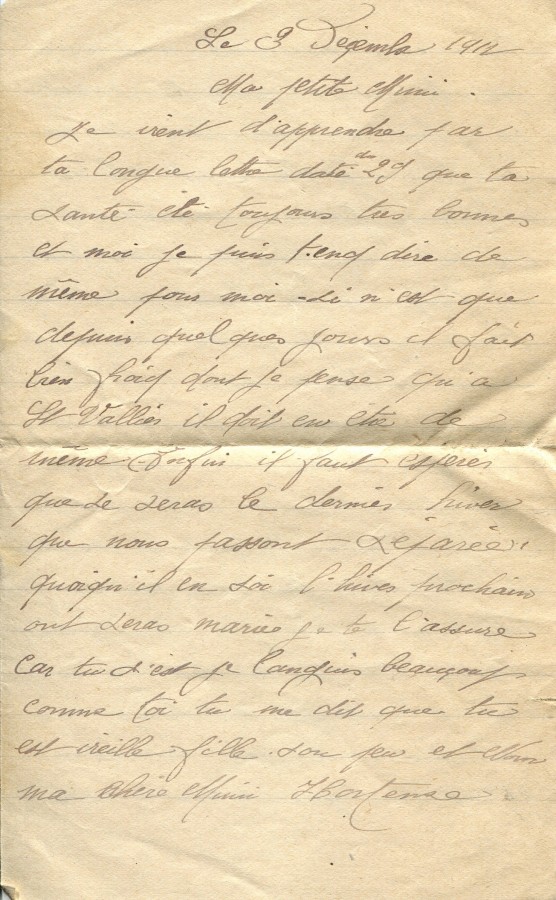 Le 3 Décembre 191
Ma petite Mimi.
Je vient d'apprendre par
ta longue lettre daté du 29 que ta
santé été toujours tres bonnes
et moi je puis t'end dire de
même pour moi si n'est que
depuis quelques jours il fait
bien froid dont je pense qu'a
St Vallier il doit en être de
même Enfin il faut espérer
que se seras le dernier hiver
que nous passont séparée
quoiqu'il en soi l'hiver prochain
ont seras mariée je te l'assure
car tu s'est je languis beaucoup
comme toi tu me dit que tu
est vieille fille son peu et Non
ma chère Mimi Hortense